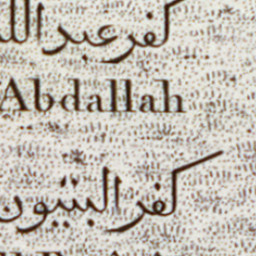 كفر عبد الله
Abdallah
كفر البتبون